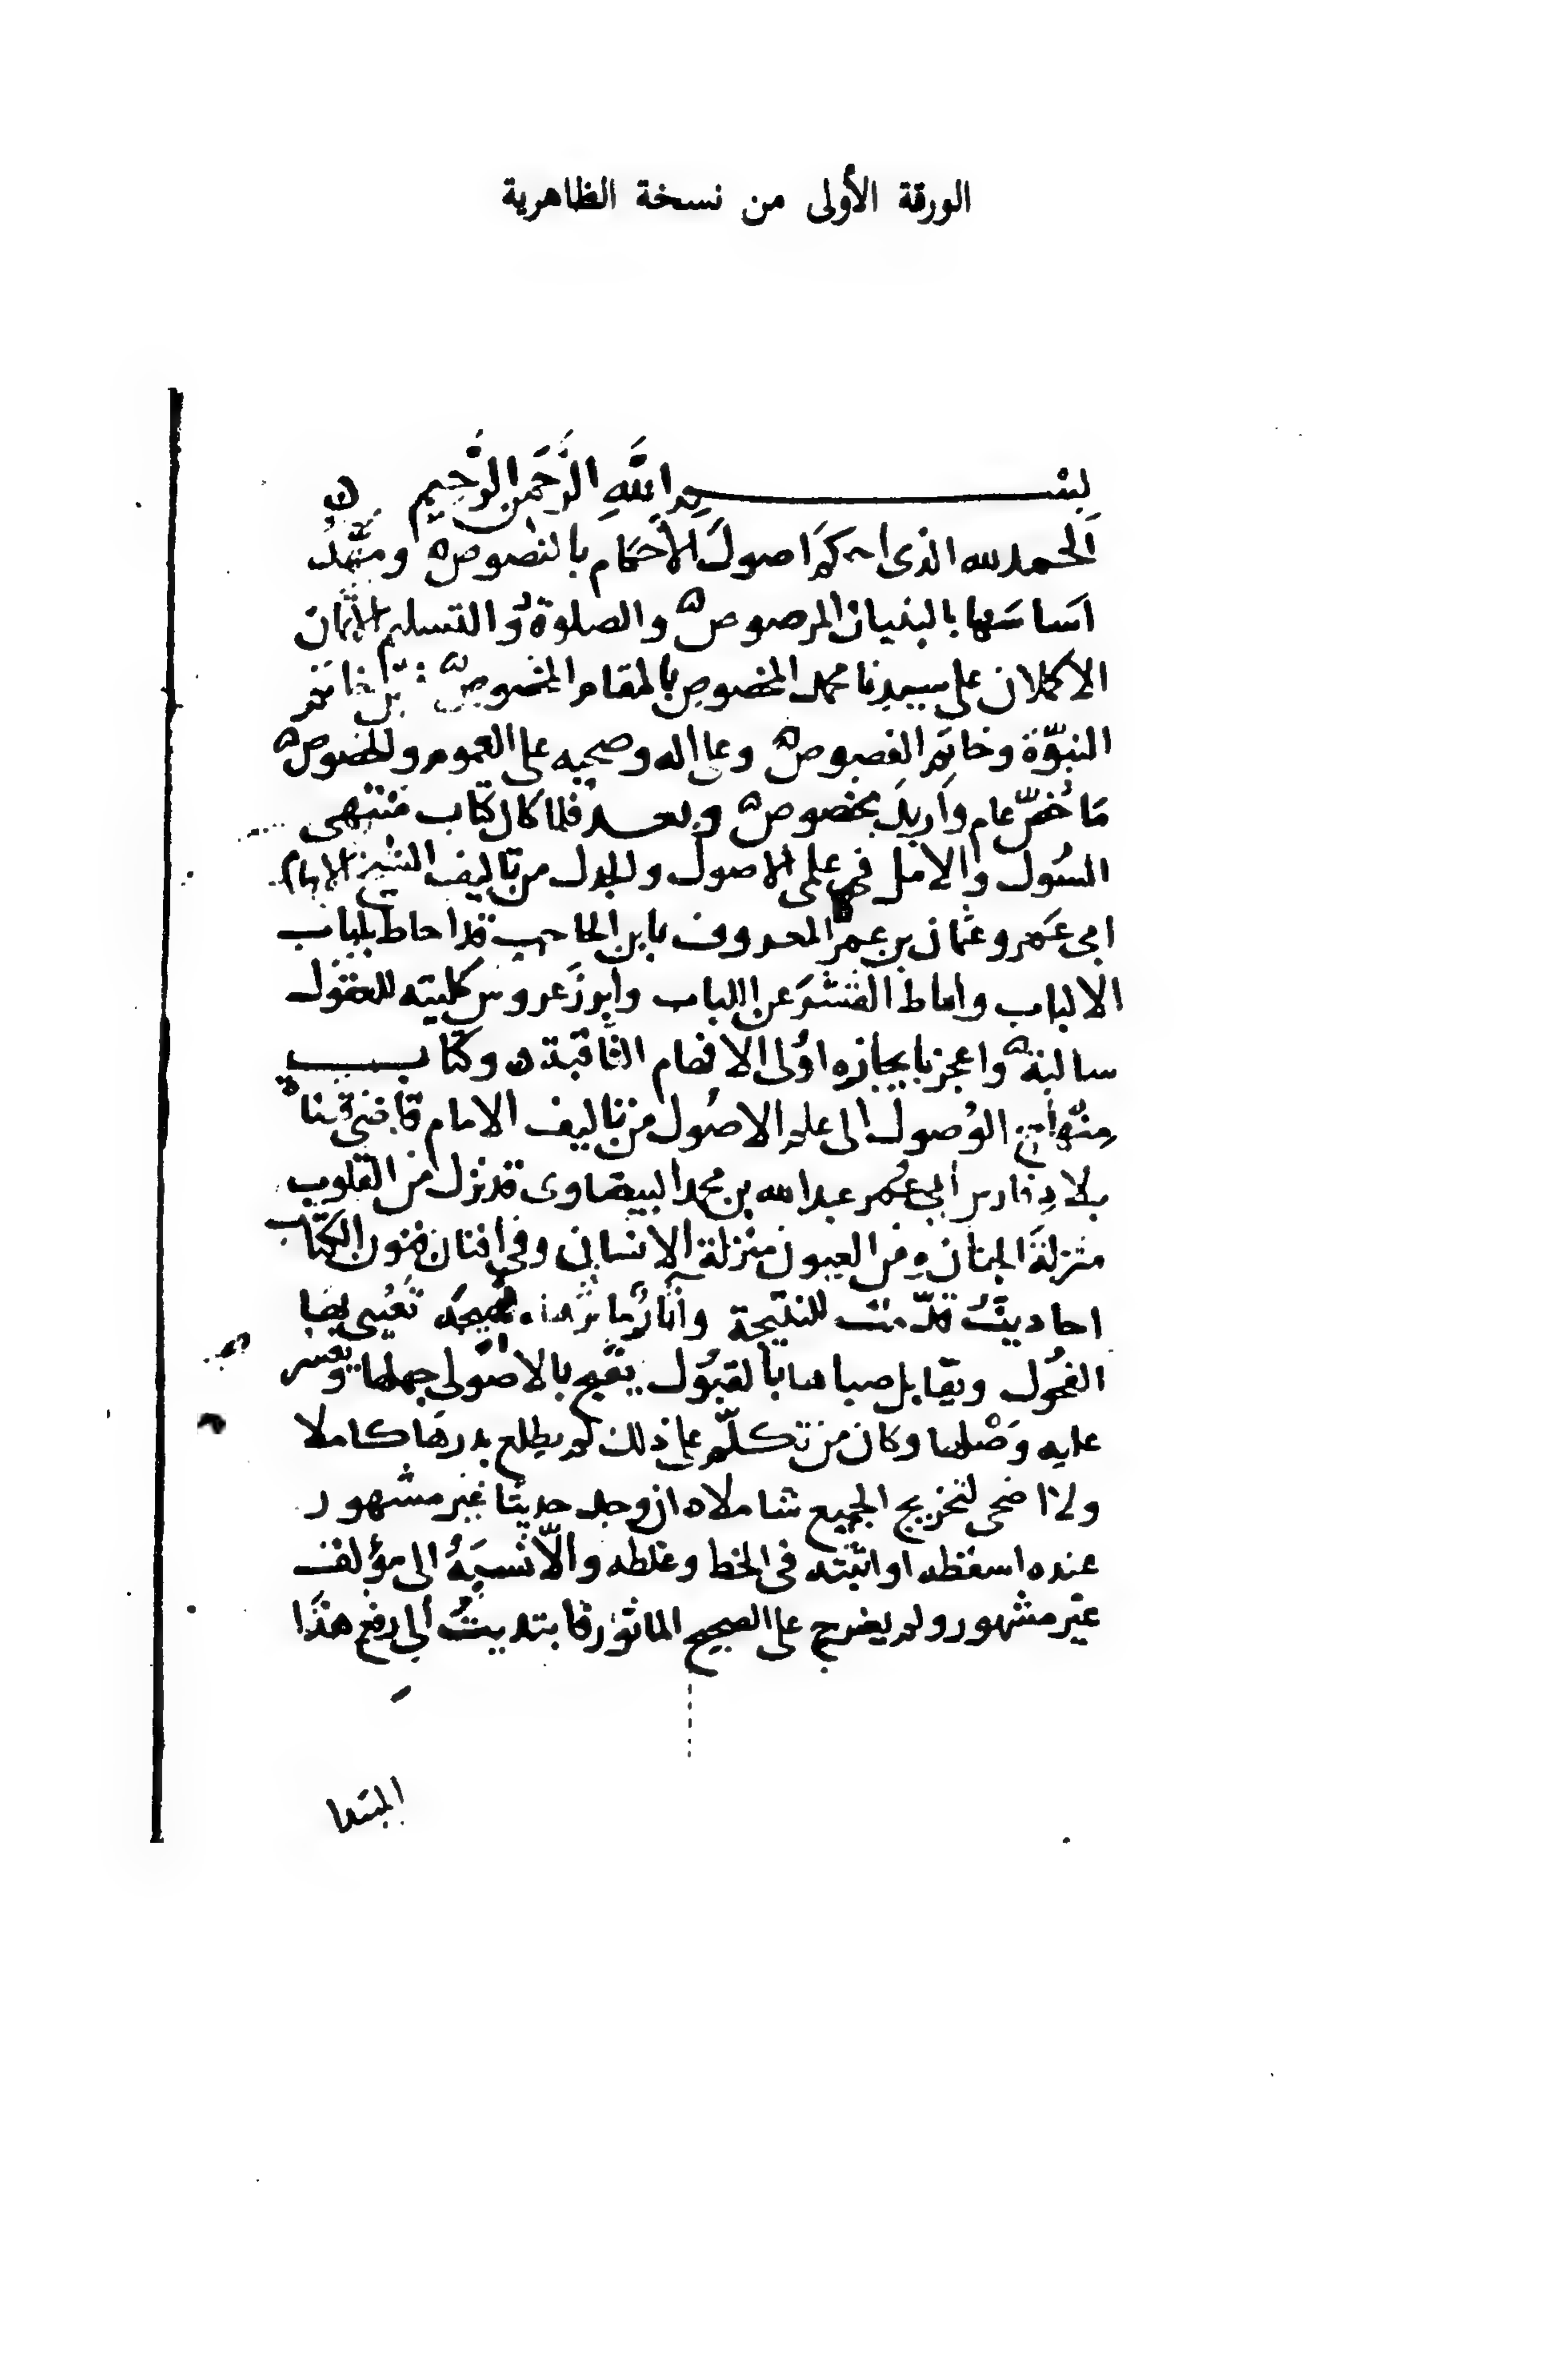 الورقة الأولى من نسخة الظاهرية
بسم الله الرَّحمن الرَّحيم
الحمد لله الذى احكم اصول الأحكام بالنصوص ومهّد
اساسَها بالبنيان المرصوص والصلوة والتسليم الاتمان
الاكملان على سيدنا محمد المخصوص بالمقام المخصوص خاتم
النبوّة وخاتِم الفصوص وعلى اله وصحبه على العموم والخصوص
مَا خُصّ عام وأريدَ بخصوص وبعد فلما كان كتاب منتهى
السُول والامل فى علمى الاصول والجدل من تاليف الشيخ الامام
ابى عَمرو عثمان بن عمر المعروف بابن الحاجب قد احاط بلباب
الالباب واماط القشرَ عن اللباب وابرزَ عروس كليته للعقول
سالبة واعجز بايجازه اوُلى الافهام الثاقبة وكتاب
مِنهاج الوُصول الى علم الاصُول من تاليف الامام قاضى قضاة
بلاد فارس ابى عُمر عبدالله بن محمد البيضاوى قد نزل من القلوب
منزلةَ الجنان ومن العيون منزلة الانسان وفى افنان فنون الكتاب
احاديثُ قدّمت للنتيجة وآثارٌ
الفحُول وتقابل صباها بالقبُول يقبح بالاصُولى جهلها ويعسر
عليه وَصْلها وكان من تكلّم على ذلك لم يطلع بدرهَا كاملا
ولا اضحى لتخريج الجميع شاملا ان وجد حديثا غير مشهور
عنده اسقطه او اثبته فى الخط وغلطه والّا نسبَهُ الى مؤلف
غير مشهور ولم يعرج على الصحيح الماثور فابتديتُ الى رفع هذَا
المبتدا